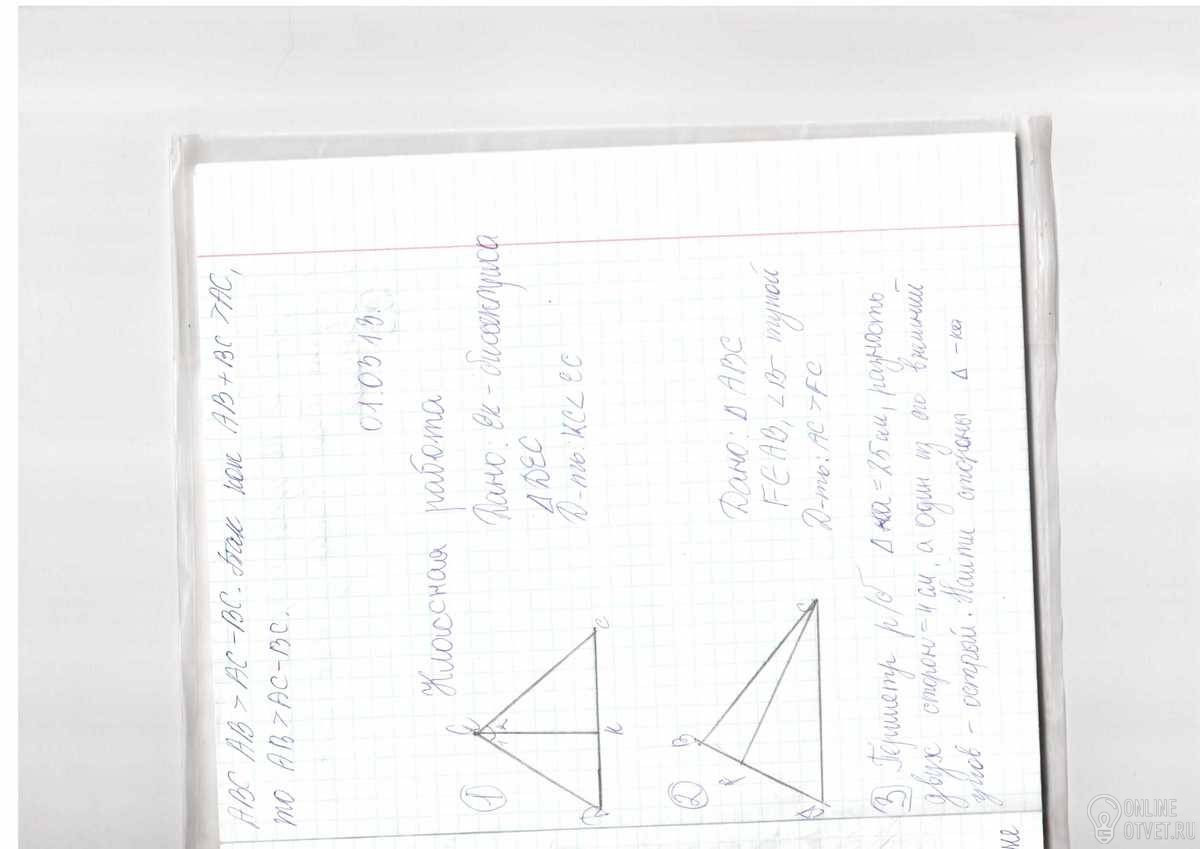 ABC AB > AC - BC. Так как AB + BC > AC,
то AB > AC - BC.
01.03 13.
Классная работа
1
Дано: EK - биссектриса
Δ DEC
Д-ть: KC < EC
E
1 2
D
K
C
2
Дано: Δ ABC
F ∈ AB, ∠B - тупой
Д-ть: AC > FC
B
F
A
C
3 Периметр р/б Δ-ка = 25 см, разность
двух сторон = 4 см, а один из его внешний
углов - острый. Найти стороны Δ - ка
ONLINE
OTVET.RU